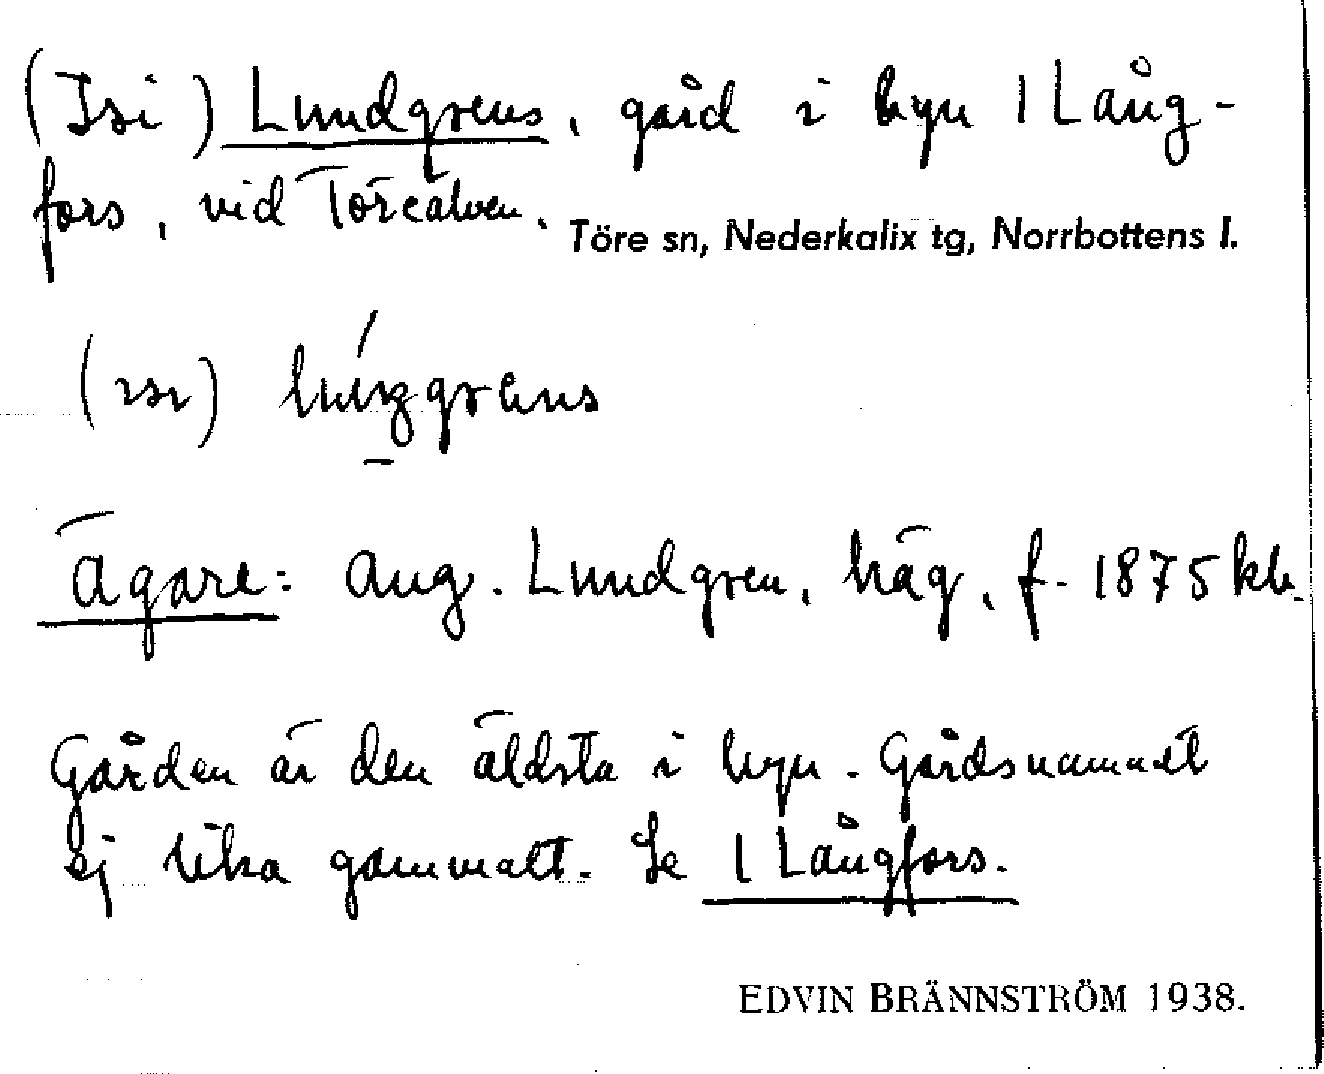 (Isi) Lundgrens, gård i byn 1 Lång-
fors, vid Töreälven. Töre sn, Nederkalix tg, Norrbottens l.
Ägare: Aug. Lundgren, häg, f. 1875
Gården är den äldsta i byn. Gårdsnamnet
ej lika gammalt. Se 1 Långfors.
EDVIN BRÄNNSTRÖM 1938.